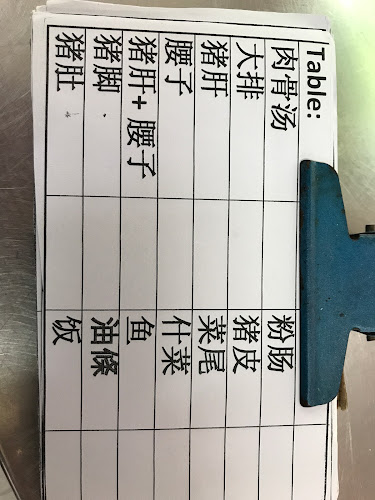 Table:
肉骨汤 粉肠
大排 猪皮
猪肝 菜尾
腰子 什菜
猪肝+ 腰子 鱼
猪脚 油條
猪肚 饭